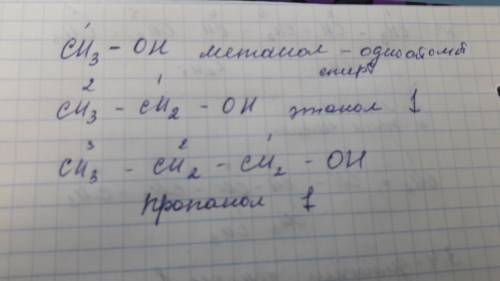 1
CH₃ - OH метанол - одноатомн
спирт
2 1
CH₃ - CH₂ - OH этанол 1
3 2 1
CH₃ - CH₂ - CH₂ - OH
пропанол 1